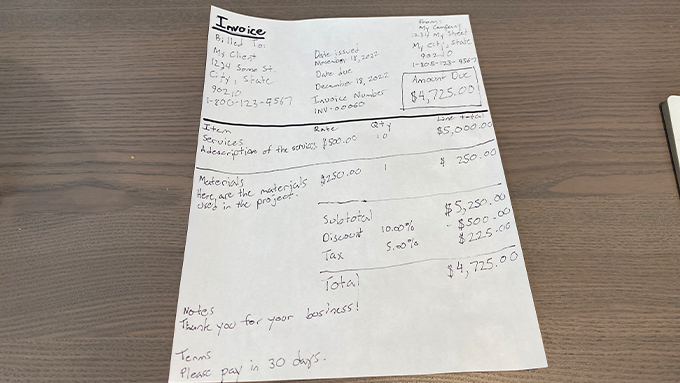 Invoice
Billed To:
My Client
1234 Some St.
City, State
90210
1-800-123-4567
Date issued
November 18, 2022
Date due
December 18, 2022
Invoice Number
INV-00060
From:
My Company
1234 My Street
My City, State
90210
1-800-123-4567
Amount Due
$4,725.00
Item Rate Qty Line total
Services
A description of the services $500.00 10 $5,000.00
Materials
Here are the materials $250.00 1 $ 250.00
used in the project.
Subtotal $5,250.00
Discount 10.00% - $500.00
Tax 5.00% $225.00
Total $4,725.00
Notes
Thank you for your business!
Terms
Please pay in 30 days.